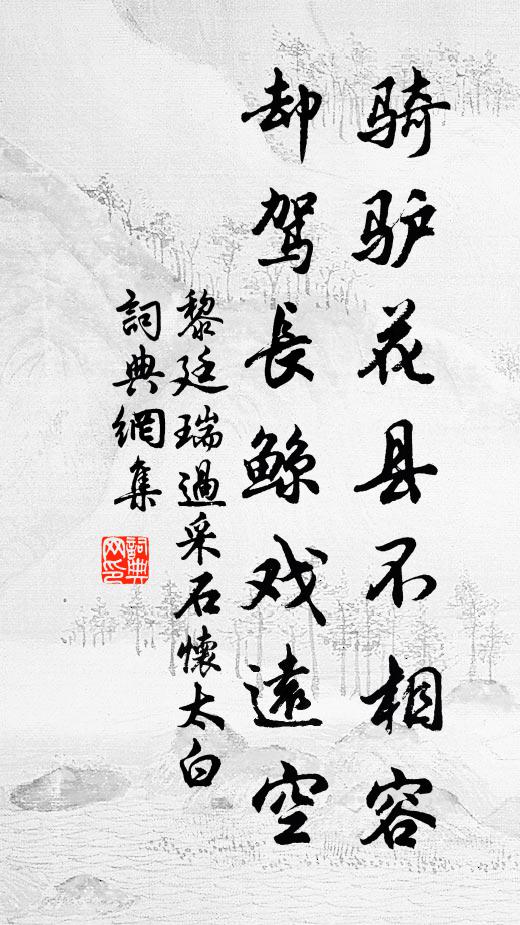 骑驴花县不相容
却驾長鲸戏遠空
黎廷瑞過采石懷太白
詞典網集
詞典网印